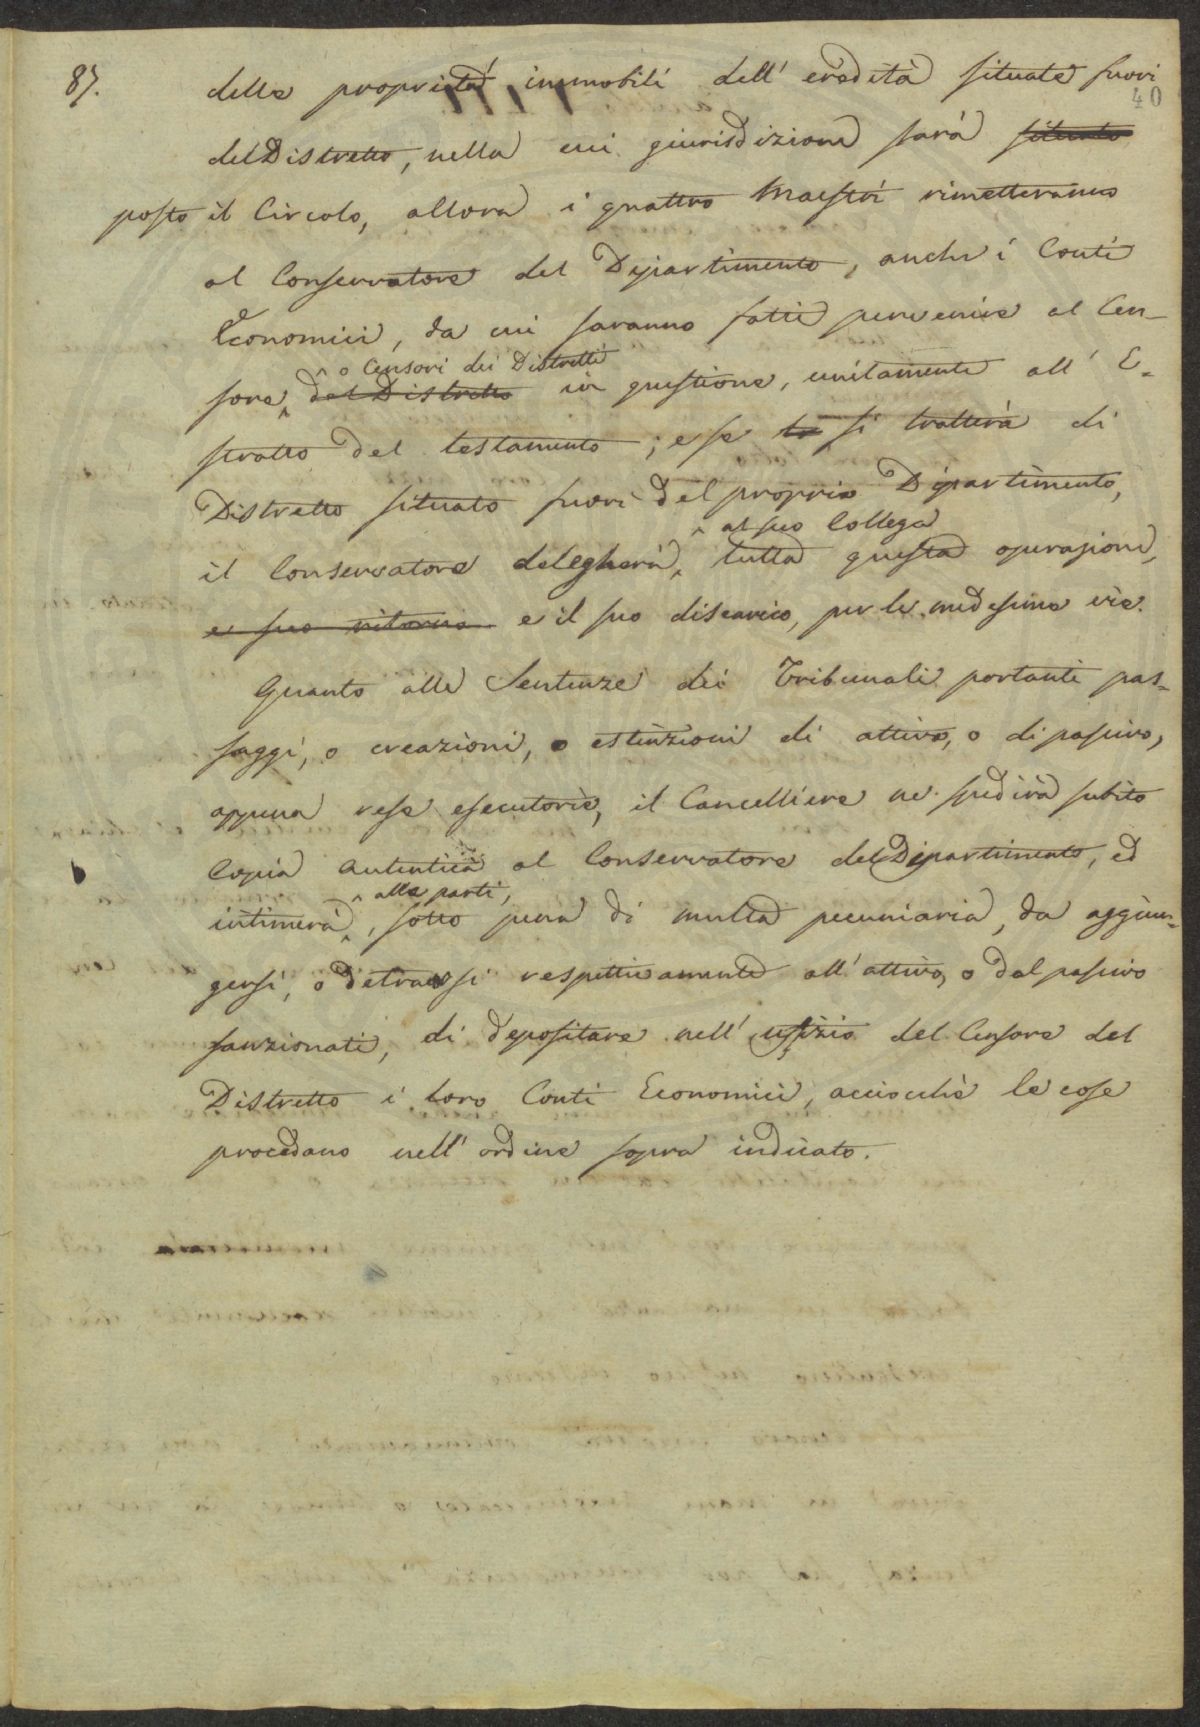 87.
40
delle proprietà immobili dell' eredità situate fuori
del Distretto, nella cui giurisdizione sarà situato
posto il Circolo, allora i quattro Maestri rimetteranno
al Conservatore del Dipartimento, anche i Conti
Economici, da cui saranno fatti pervenire al Cen-
o Censori dei Distretti
sore, del Distretto in questione, unitamente all' E-
stratto del testamento; e se si tratterà di
Distretto situato fuori del proprio Dipartimento,
al suo Collega
il Conservatore delegherà, tutta questa operazione,
e suo ritorno e il suo discarico, per le medesime vie.
Quanto alle Sentenze dei Tribunali portanti pas-
saggi, o creazioni, o estinzioni di attivo, o di passivo,
appena rese esecutorie, il Cancelliere ne spedirà subito
Copia autentica al Conservatore del Dipartimento, ed
alle parti,
intimerà, sotto pena di multa pecuniaria, da aggiun-
gersi, o detraersi respettivamente all' attivo, o dal passivo
sanzionati, di depositare nell' uffizio del Censore del
Distretto i loro Conti Economici, acciocchè le cose
procedano nell' ordine sopra indicato.